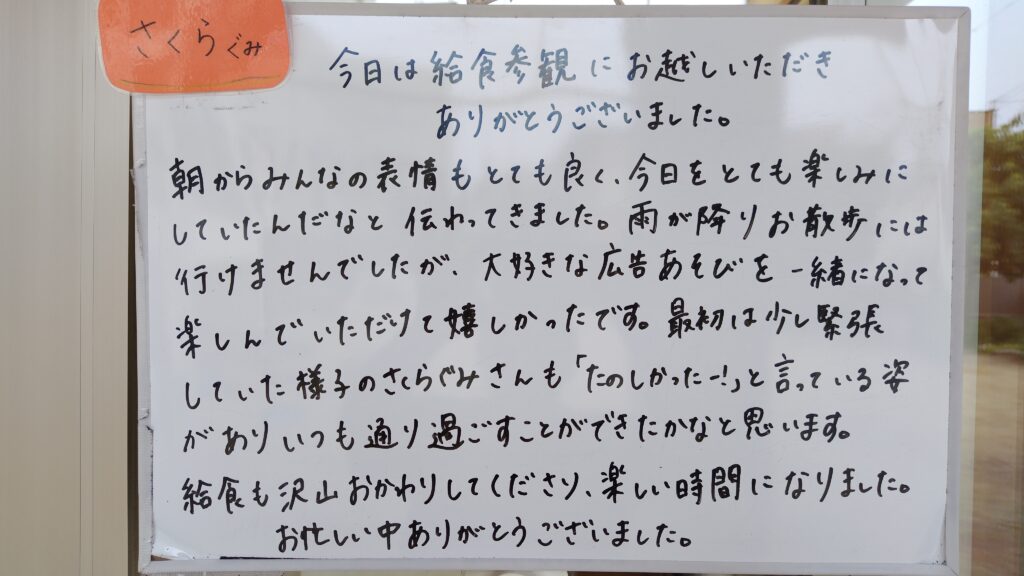 さくらぐみ
今日は給食参観にお越しいただき
ありがとうございました。
朝からみんなの表情もとても良く、今日をとても楽しみに
していたんだなと伝わってきました。雨が降りお散歩には
行けませんでしたが、大好きな広告あそびを一緒になって
楽しんでいただけて嬉しかったです。最初は少し緊張
していた様子のさくらぐみさんも「たのしかったー!」と言っている姿
がありいつも通り過ごすことができたかなと思います。
給食も沢山おかわりしてくださり、楽しい時間になりました。
お忙しい中ありがとうございました。